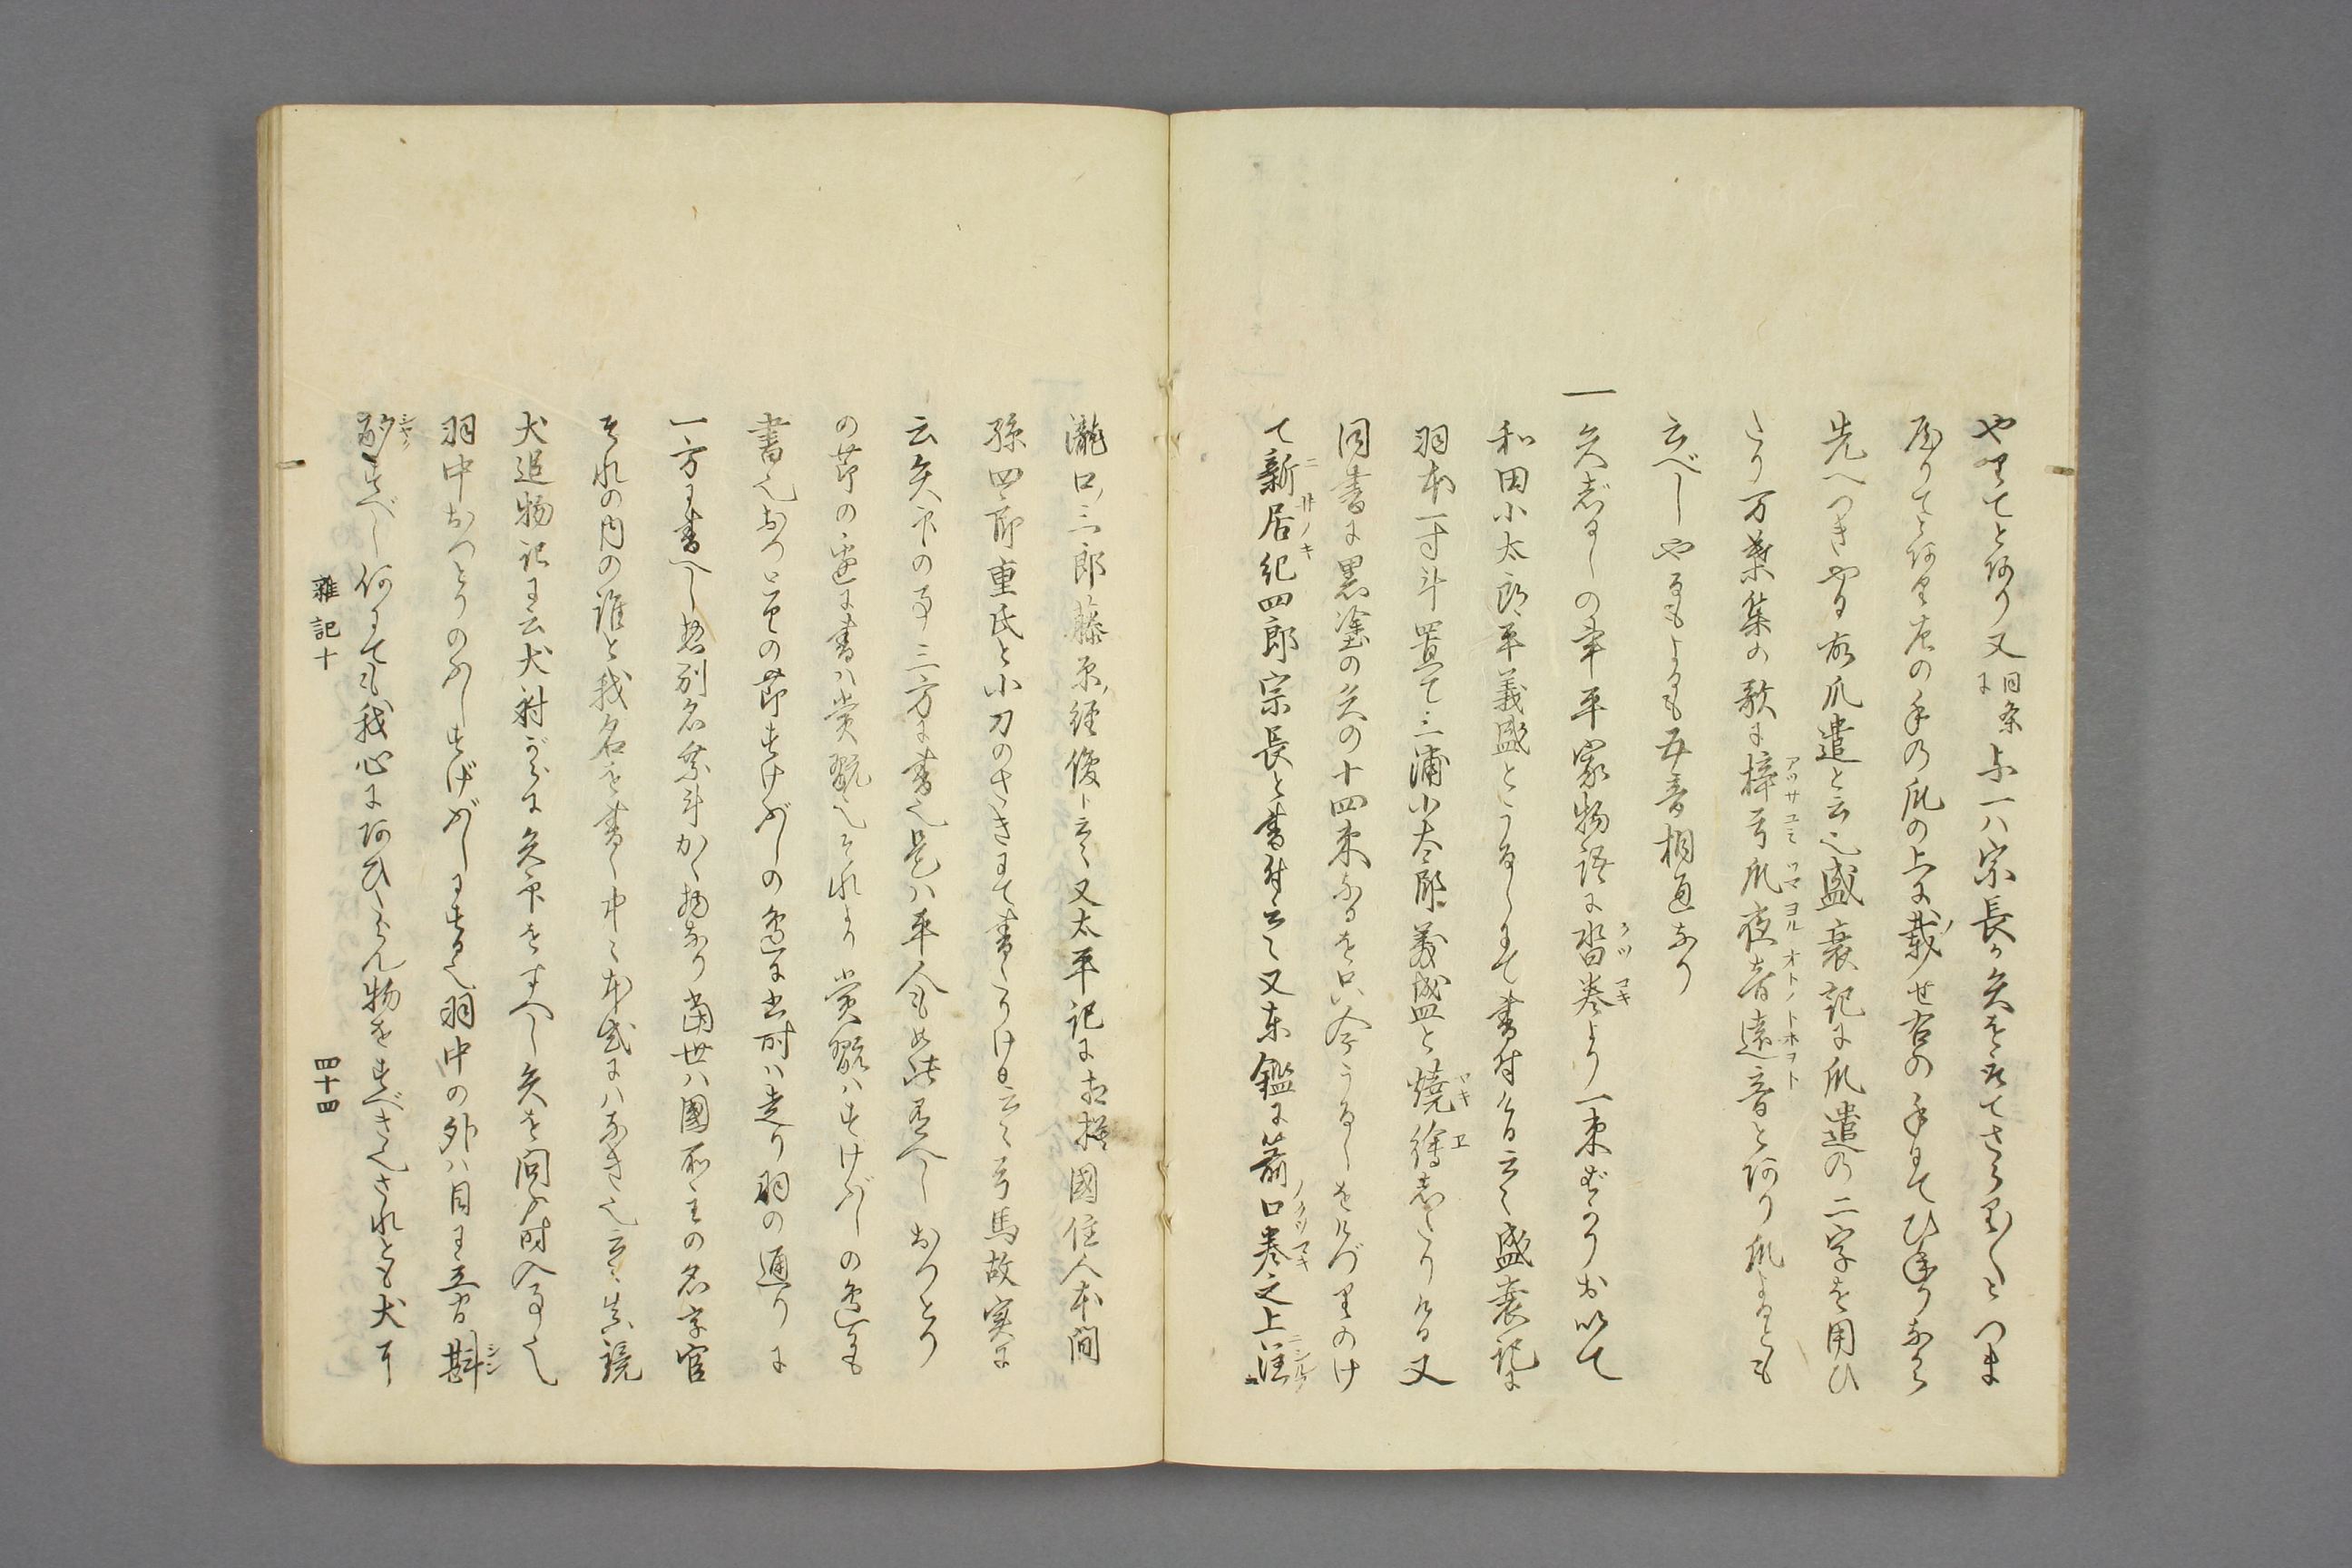 やりてとあり又同条に与一ハ宗長か矢を取てさらり〱とつま
やりてとあり左の手の爪の上に載せ右の手にてひ子りなから
先へつきやる故爪遣と云也盛衰記に爪遣の二字を用ひ
たり万葉集の歌に梓弓爪夜音遠音とあり爪よるとも
云べしやるもよるも五音相通なり
一矢じるしの事平家物語に沓巻より一束ばかりおいて
和田小太郎平義盛とうるしにて書付ケる云〻盛衰記に
羽本一寸斗置て三浦小太郎義盛と焼絵したりける又
同書に黒塗の矢の十四束なるを只今うるしをけづりのけ
て新居紀四郎宗長と書付云〻又東鑑に箭口巻之上注
瀧口三郎藤原経俊ト云〻又太平記に相模國住人本間
孫四郎重氏と小刀のさきにて書たりけ云〻弓馬故実に
云矢印の事三方に書也是ハ平人も如此有へしおつとり
の節の通に書ハ賞翫也それより賞翫ハすげぶしの通も
書也おつとりの節すげぶしの通に書時ハ走り羽の通りに
一方に書へし惣別名条斗かく物なり当世ハ國所主の名字官
それの内の誰と我名を書く中〻本式にハなき也云〻真説
犬追物記に云犬射がらに矢印をすへし矢を問ふ時入事也
羽中おつとりのふしすげぶしにする也羽中の外ハ目に立間斟
酌すべし何にても我心にあひたらん物をすべき也されとも犬可
雑記十
四十四